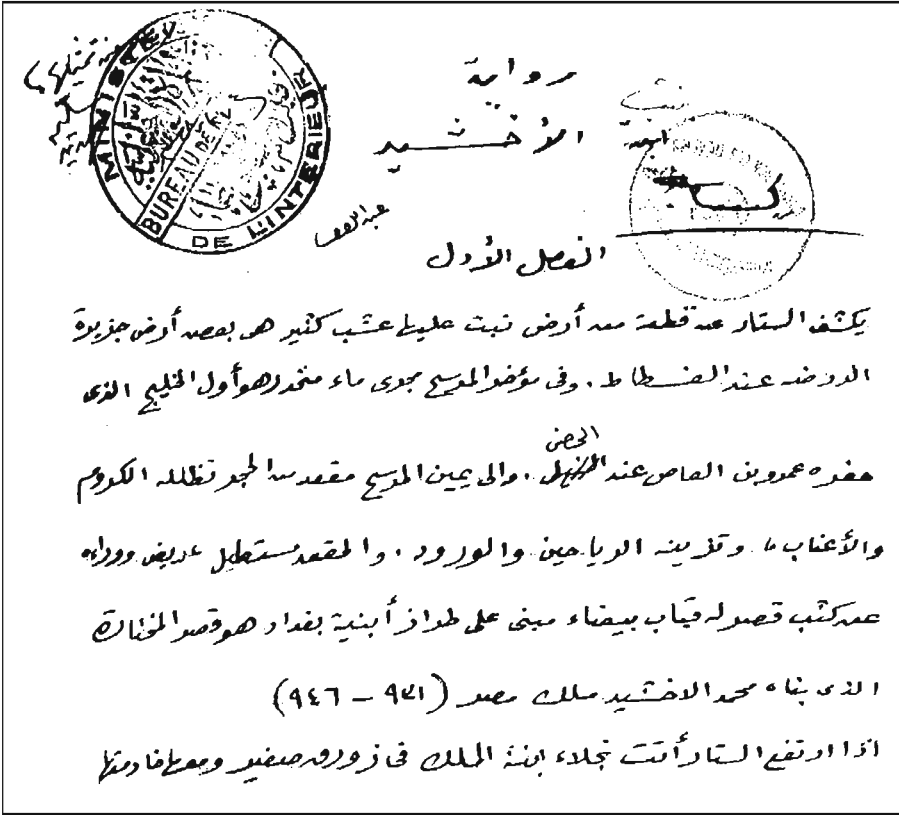 رواية
الأخشيد
MINISTÈRE DE L'INTERIEUR
BUREAU DE
الفصل الأول
يكشف الستار عن قطعة من أرض نبت عليها عشب كثير هى بعض أرض جزيرة
الروضه عند الفسطاط . وفى مؤخر المسرح مجرى ماء منحدر هو أول الخليج الذى
الحصن
حفره عمرو بن العاص عند . والى يمين المسرح مقعد من الحجر تظلله الكروم
والأعناب وتزينه الرياحين والورود . والمقعد مستطيل عريض ووراءه
عن كثب قصر له قباب بيضاء مبنى على طراز أبنية بغداد هو قصر المختارة
الذى بناه محمد الاخشيد ملك مصر (٩٣١ – ٩٤٦)
اذا ارتفع الستار أتت نجلاء ابنة الملك فى زورق صغير ومعها خادمتها